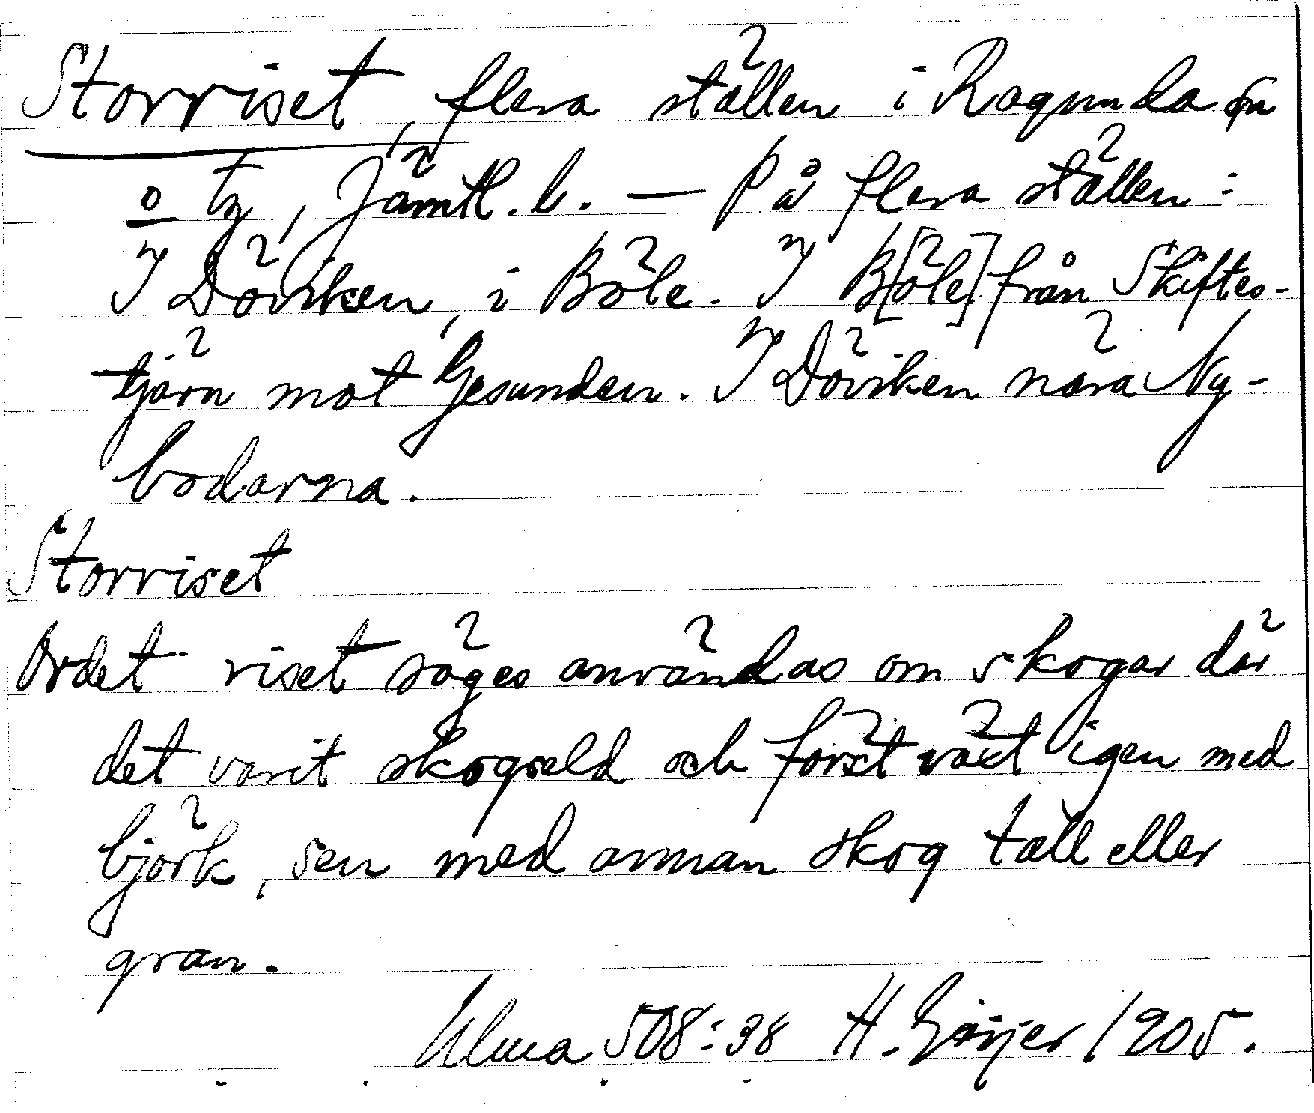 Storriset, flera ställen i Ragunda sn
o tg, Jämtl. l. — På flera ställen:
I Döviken, i Böle. I B[öle] från Skiftes-
tjärn mot Gesunden. I Döviken nära Ny-
bodarna.
Storriset
Ordet riset säges användas om skogar där
det varit skogseld och först växt igen med
björk, sen med annan skog tall eller
gran.
Ulma 508:38 H. Geijer 1905.